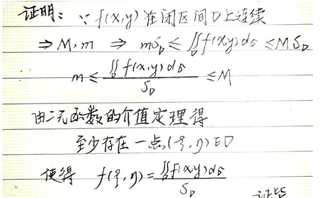 证明: ∵ f(x,y)在闭区间D上连续
⇒ M, m ⇒ mS_D ≤ ∬f(x,y)dσ ≤ MS_D
m ≤ ∬f(x,y)dσ / S_D ≤ M
由二元函数的介值定理得
至少存在一点,(ξ,η)∈D
使得 f(ξ,η)=∬f(x,y)dσ / S_D
证毕